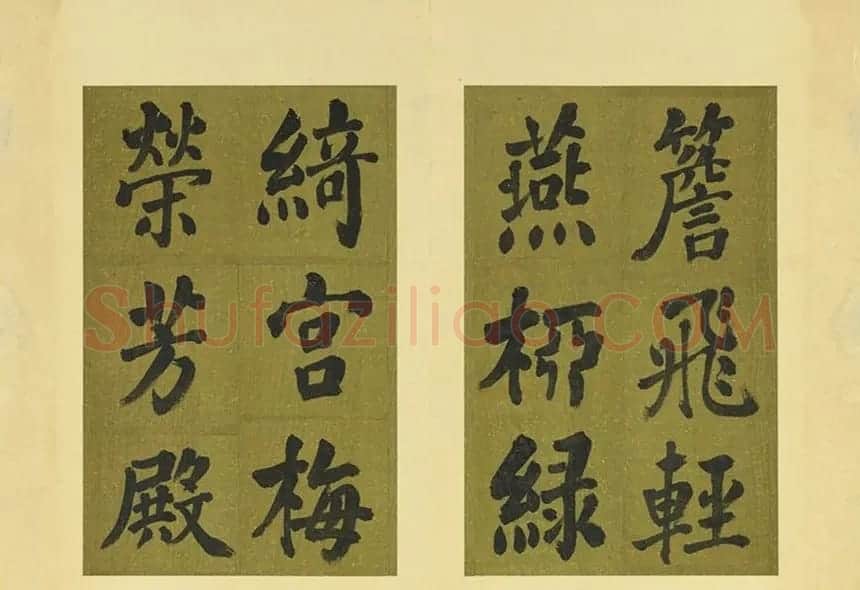 簷飛輕
燕柳緑
綺宮梅
榮芳殿
Shufaziliao.COM